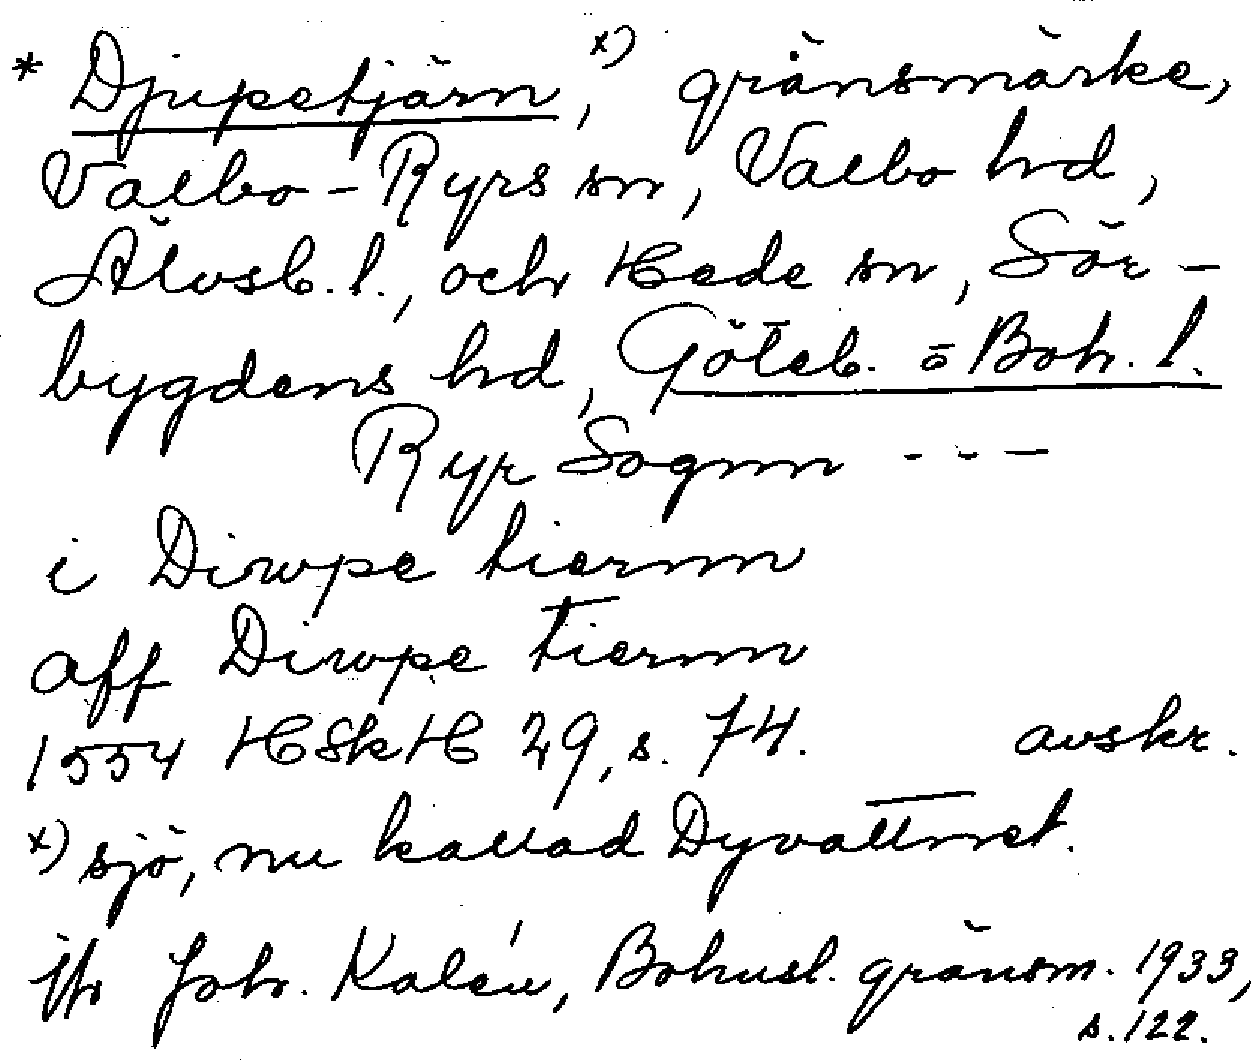 * Djupetjärn,ˣ⁾ gränsmärke,
Valbo-Ryrs sn, Valbo hd,
Älvsb. l., och Hede sn, Sör-
bygdens hd, Göteb. o Boh. l.
Ryr Sognn - - -
i Diwpe tiernn
aff Diwpe tiernn
1554 HSkH 29, s. 74. avskr.
x) sjö, nu kallad Dyvattnet.
jfr Joh. Kalén, Bohusl. gränsm. 1933,
s. 122.